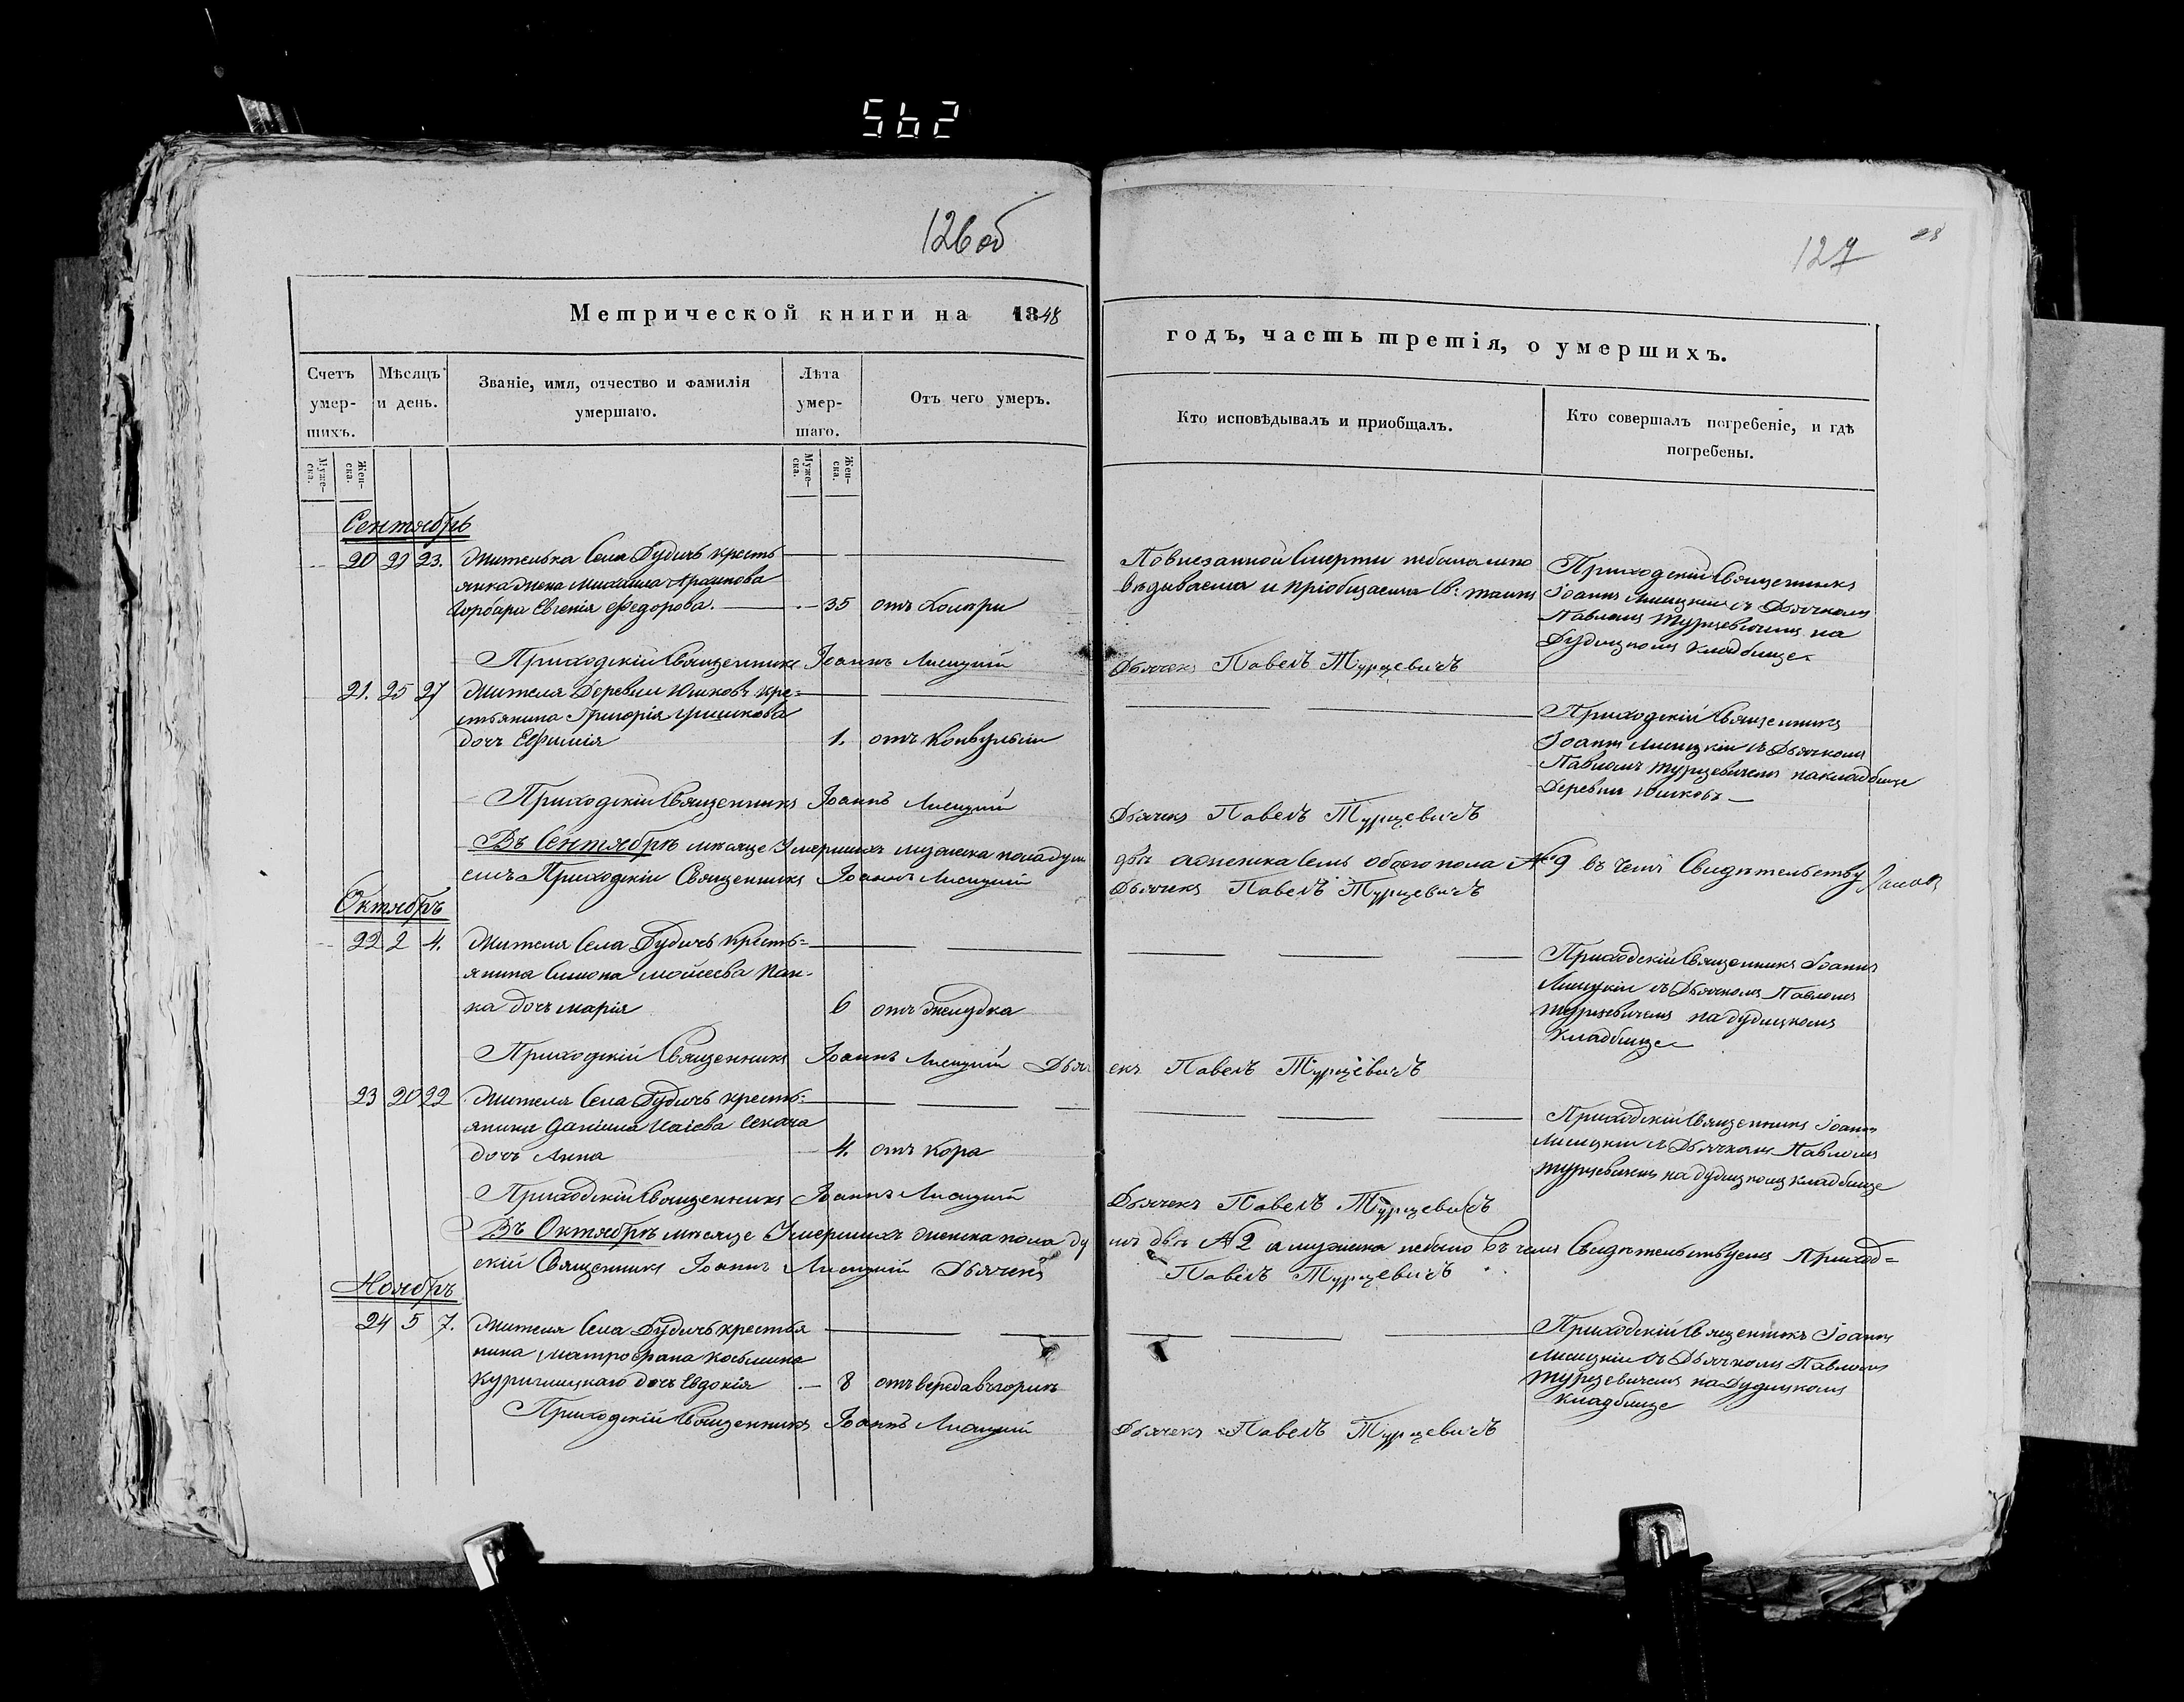 562
126 об
127
28
Метрической книги на 1848
годъ, часть третія, о умершихъ.
Счетъ умер-шихъ.
Мѣсяцъ и день.
Званіе, имя, отчество и фамилія умершаго.
Лѣта умер-шаго.
Отъ чего умеръ.
Кто исповѣдывалъ и пріобщалъ.
Кто совершалъ погребеніе, и гдѣ погребены.
Муже-ска.
Жен-ска.
Муже-ска.
Жен-ска.
Сентябрь
20 21 23. Жителька Села Дудичъ кресть
янка жена Михаила
Горбара Евгенія Федорова. 35 отъ Холеры
По внезапной Смерти небыла испо
вѣдываема и пріобщаема Св: таинъ
Приходскій Священникъ
Іоаннъ Лисицкій съ Дьячкомъ
Павломъ Турцевичемъ на
Дудицкомъ кладбище.
Приходскій Священникъ Іоаннъ Лисицкій
Дьячекъ Павелъ Турцевичъ
21. 25 27 Жителя Деревни Юшковъ кре=
стьянина Григорія Гришкова
дочъ Евфимія 1. отъ Конвульсіи
Приходскій Священникъ
Іоаннъ Лисицкій съ Дьячкомъ
Павломъ Турцевичемъ на кладбище
Деревни Юшковъ
Приходскій Священникъ Іоаннъ Лисицкій
Дьячекъ Павелъ Турцевичъ
Въ Сентябрѣ мѣсяце Умершихъ мужеска пола душ
двѣ а женска Семь обоего пола № 9 въ чемъ Свидѣтельству
емъ Приходскій Священникъ Іоаннъ Лисицкій
Дьячекъ Павелъ Турцевичъ
Октябрь
22 2 4. Жителя Села Дудичъ Кресть=
янина Симона Мойсеева Пан-
ка дочъ Марія 6 отъ желудка
Приходскій Священникъ Іоаннъ
Лисицкій съ Дьячкомъ Павломъ
Турцевичемъ на дудицкомъ
Кладбище
Приходскій Священникъ Іоаннъ Лисицкій Дьяч
екъ Павелъ Турцевичъ
23 20 22 Жителя Села Дудичъ кресть=
янина Даніила Исаіева Секача
дочъ Анна 4. отъ Кора
Приходскій Священникъ Іоаннъ
Лисицкій съ Дьячкомъ Павломъ
Турцевичемъ на дудицкомъ кладбище
Приходскій Священникъ Іоаннъ Лисицкій
Дьячекъ Павелъ Турцевичъ
Въ Октябрѣ мѣсяце Умершихъ женска пола ду
шъ двѣ № 2 а мужска небыло въ чемъ Свидѣтельствуемъ Приход=
скій Священникъ Іоаннъ Лисицкій Дьячекъ
Павелъ Турцевичъ
Ноябрь
24 5 7. Жителя Села Дудичъ крестья
нина Митрофана Косьмина
дочъ Евдокія 8 отъ вереда въ горлѣ
Приходскій Священникъ Іоаннъ
Лисицкій съ Дьячкомъ Павломъ
Турцевичемъ на Дудицкомъ
кладбище
Приходскій Священникъ Іоаннъ Лисицкій
Дьячекъ Павелъ Турцевичъ